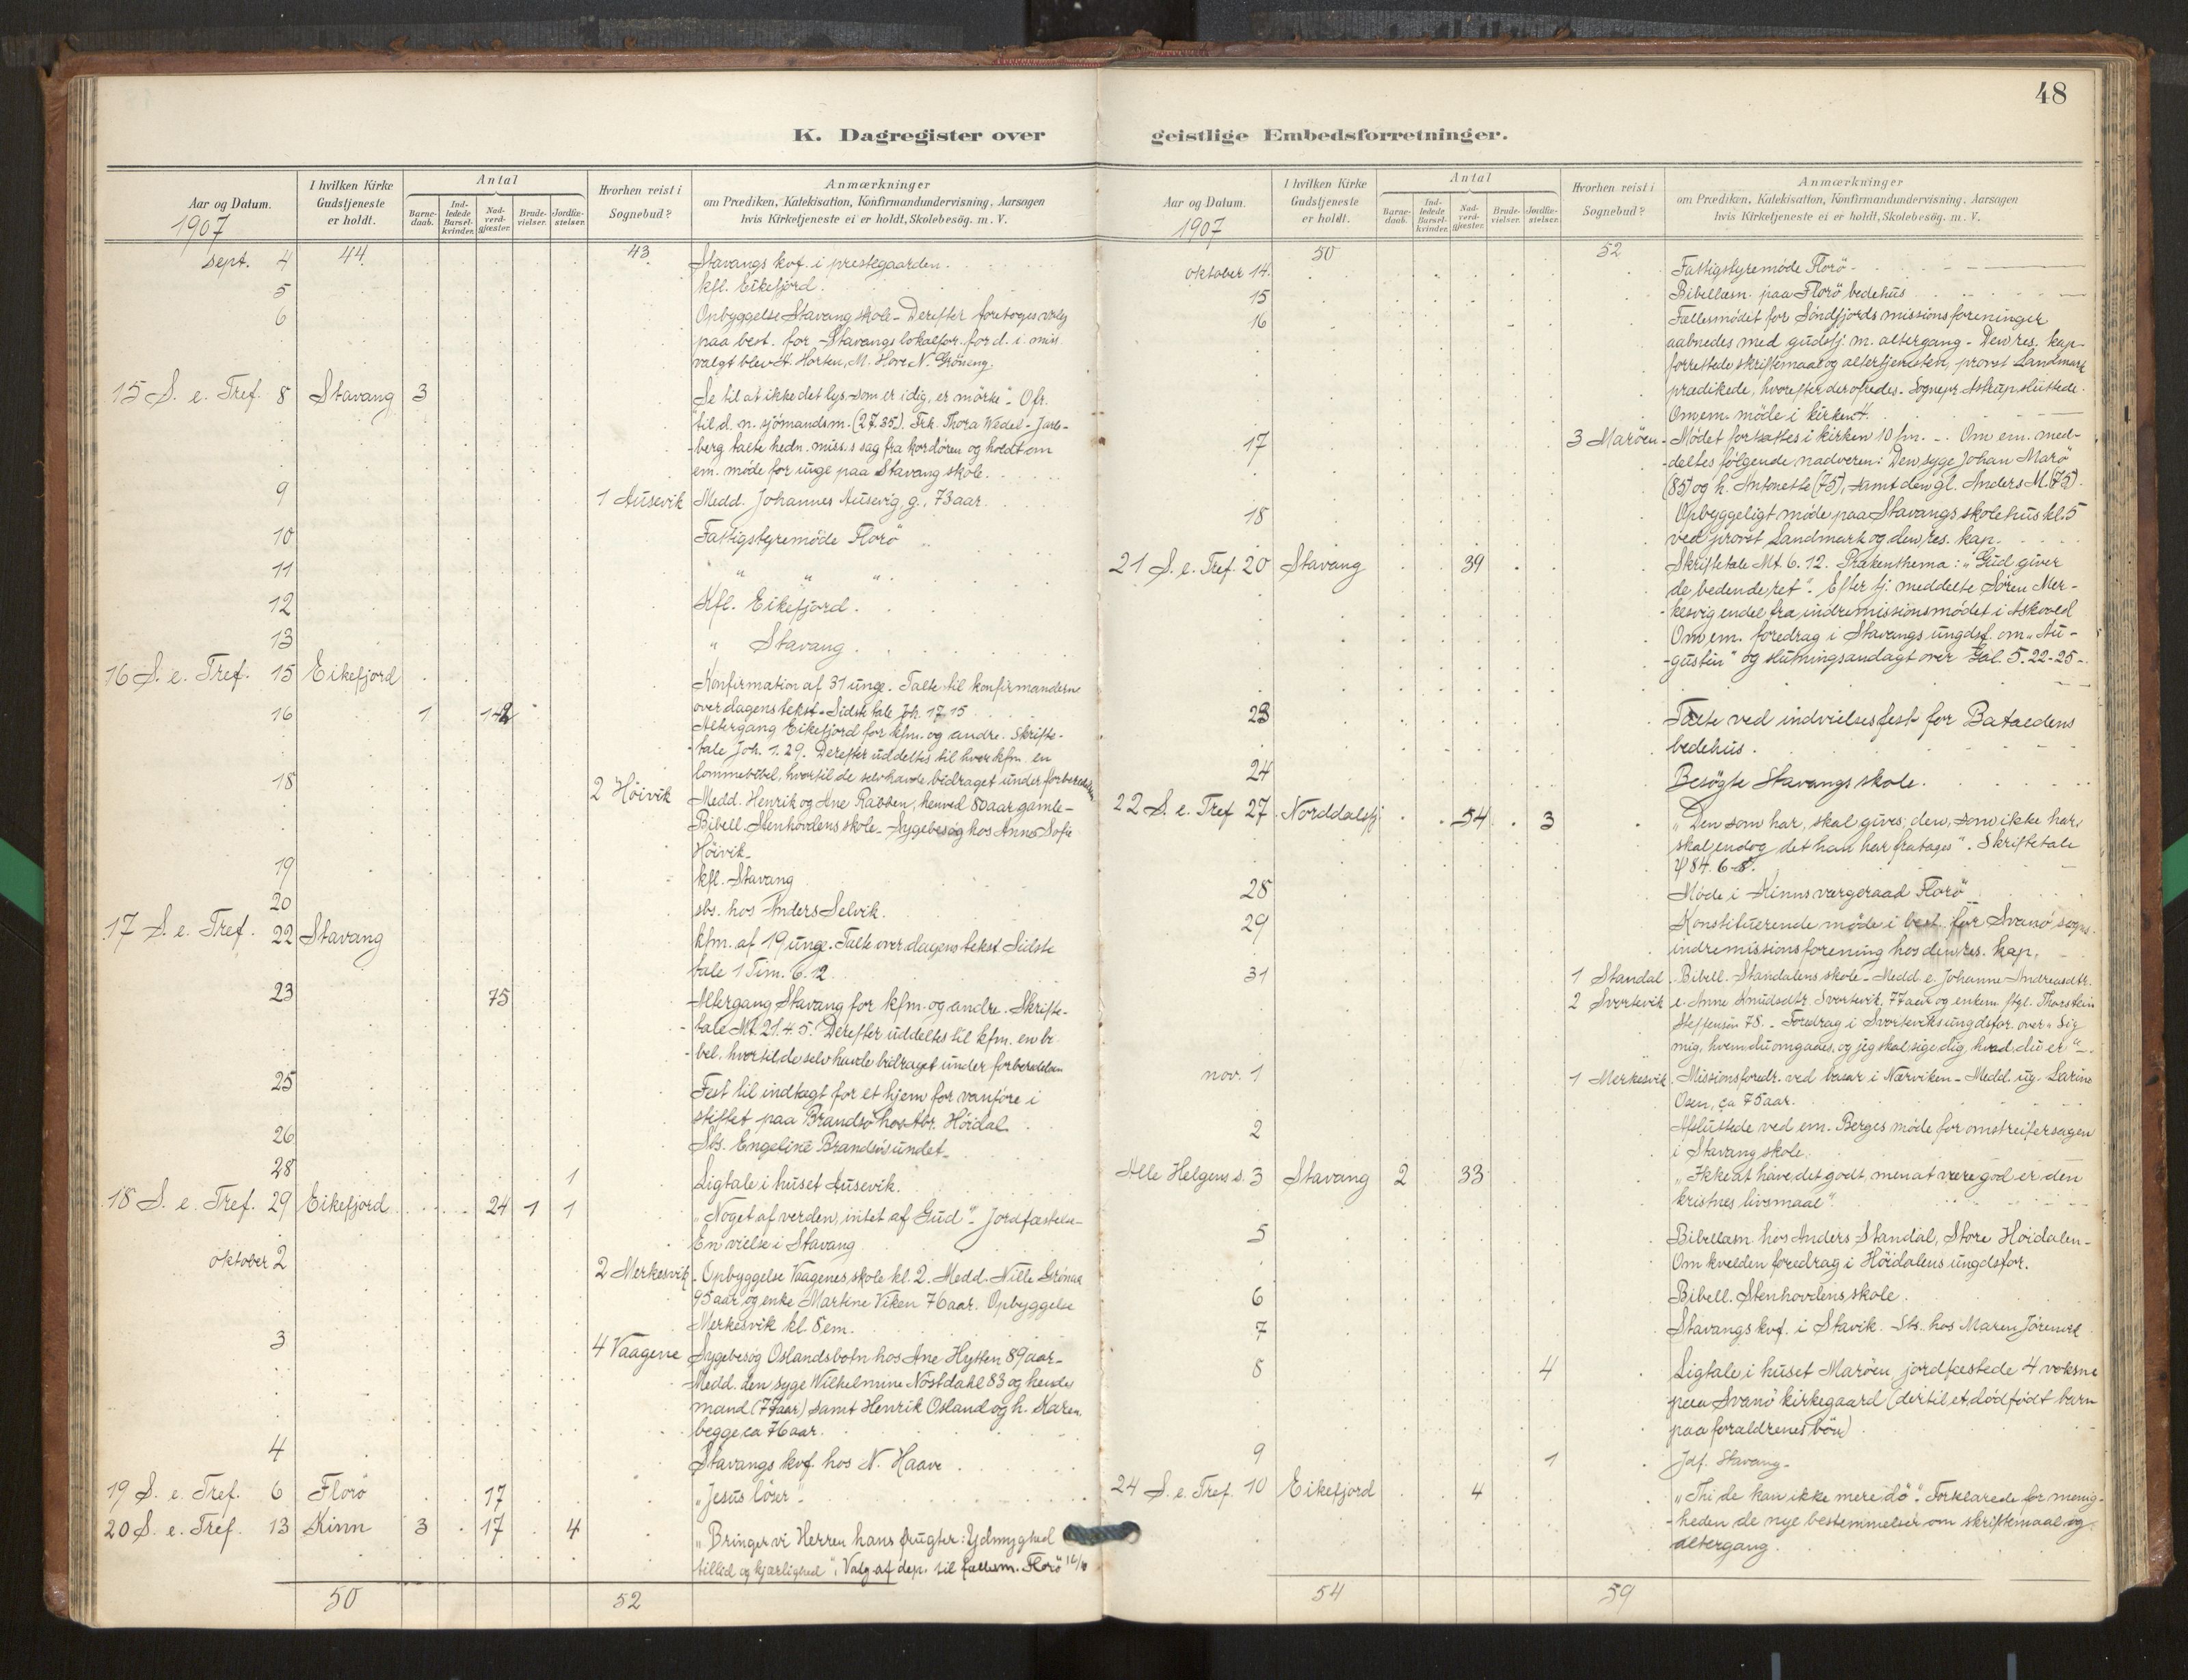 48
K. Dagregister over
geistlige Embedsforretninger.
Aar og Datum.
1907
I hvilken Kirke Gudstjeneste er holdt.
Antal
Barnedaab.
Indledede Barselkvinder.
Nadverdgjæster.
Brudevielser.
Jordfæstelser.
Hvorhen reist i Sognebud?
Anmærkninger
om Prædiken, Katekisation, Konfirmandundervisning, Aarsagen
hvis Kirketjeneste ei er holdt, Skolebesög. m. V.
44 43
sept. 4 Stavangs kvf. i prestegaarden.
5 kfl. Eikefjord.
6 Opbyggelse Stavang skole - Derefter foretoges valg
paa best. for Stavangs lokalfor. for d. i. miss.
valgt blev H. Horten, M. Hove N. Gröneng.
15 S. e. Tref. 8 Stavang 3 Se til at ikke det lys, som er i dig, er mörke". Ofr.
til d. n. sjömandsm. (27.35). Frk. Thora Wedel-Jarls-
-berg talte hedn. miss.s sag fra kordören og holdt om
em. möde for unge paa Stavang skole.
9 1 Ausevik Medd. Johannes Ausevig, g., 73 aar.
10 Fattigstyremöde Florö
11 " " "
12 Kfl. Eikefjord.
13 " Stavang.
16 S. e. Tref. 15 Eikefjord Konfirmation af 31 unge. Talte til konfirmanderne
over dagens tekst. Sidste tale Joh. 17.15
16 1 142 Altergang Eikefjord for kfm. og andre. Skrifte-
-tale Joh. 1.29. Derefter uddeltes til hver kfm. en
lommebibel, hvortil de selv havde bidraget under forberedelsen
18 2 Höivik Medd. Henrik og Ane Rabben, henved 80 aar gamle -
Bibell. Stenhovdens skole - Sygebesög hos Anne Sofie
Höivik -
19 kfl. Stavang
20 sbs. hos Anders Selvik.
17 S. e. Tref. 22 Stavang kfm. af 19 unge. Talte over dagens tekst. Sidste
tale 1 Tim. 6.12
23 75 Altergang Stavang for kfm. og andre. Skrifte-
-tale Mt. 21.4.5. Derefter uddeltes til kfm. en bi-
-bel, hvortil de selv havde bidraget under forberedelsen
25 Fest til indtægt for et hjem for vanföre i
stiftet paa Brandsö hos Abr. Höidal
26 Sbs. Engeline Brandsösundet -
28 1 Ligtale i huset Ausevik.
18 S. e. Tref. 29 Eikefjord 24 1 1 „Noget af verden, intet af Gud" - Jordfæstelse -
En vielse i Stavang
oktober 2 2 Merkesvik Opbyggelse Vaagenes skole kl. 2. Medd. Nille Grönaa
95 aar og enke Martine Viken 76 aar. Opbyggelse
Merkesvik kl. 8 em.
3 4 Vaagene Sygebesög Oslandsbotn hos Ane Hytten 89 aar -
Medd. den syge Wilhelmine Nöstdahl 83 og hendes
mand (77 aar) samt Henrik Osland og h. Karen,
begge ca 76 aar.
4 Stavangs kvf. hos N. Haave.
19 S. e. Tref. 6 Florö 17 „Jesus löser".
20 S. e. Tref. 13 Kinn 3 17 4 „Bringer vi Herren hans frugter: Ydmyghed
tillid og kjærlighed". Valg af dep. til fællesm. Florö 16/10
50 52
Aar og Datum.
1907
I hvilken Kirke Gudstjeneste er holdt.
Antal
Barnedaab.
Indledede Barselkvinder.
Nadverdgjæster.
Brudevielser.
Jordfæstelser.
Hvorhen reist i Sognebud?
Anmærkninger
om Prædiken, Katekisation, Konfirmandundervisning, Aarsagen
hvis Kirketjeneste ei er holdt, Skolebesög. m. V.
50 52
oktober 14. Fattigstyremöde Florö -
15 Bibellæsn. paa Florö bedehus
16 Fællesmödet for Söndfjords missionsforeninger
aabnedes med gudstj. m. altergang - Den res. kap.
forrettede skriftemaal og altertjenesten, provst Landmark
prædikede, hvorefter der ofredes. Sognepr. Astrup sluttede.
Om em. möde i kirken.
17 3 Maröen - Mödet fortsattes i kirken 10 fm. - Om em. med-
-deltes fölgende nadveren: Den syge Johan Marö
(85) og h. Antonette (75), samt den gl. Anders M. (75).
18 Opbyggeligt möde paa Stavangs skolehus kl. 5
ved provst Landmark og den res. kap.
21 S. e. Tref. 20 Stavang 39 Skriftetale Mt. 6.12. Prækenthema: „Gud giver
de bedende ret". Efter tj. meddelte Sören Mer-
-kesvig endel fra indremissionsmödet i Askvoll
Om em. foredrag i Stavangs ungdsf. om „Au-
-gustin" og slutningsandagt over Gal. 5.22-25 -
23 Talte ved indvielsesfest for Bataldens
bedehus.
24 Besögte Stavangs skole.
22 S. e. Tref 27 Norddalsfj. 54 3 „Den som har, skal gives; den, som ikke har,
skal endog det han har fratages". Skriftetale
ψ 84. 6-8.
28 Möde i Kinns værgeraad Florö
29 Konstituerende möde i best. for Svanö sogns
indremissionsforening hos den res. kap.
31 1 Standal Bibell. Standalens skole - Medd. e. Johanne Andreasdtr.
2 Svortevik e. Anne Knudsdtr. Svortevik, 77 aar og enkem. fhgl. Thorstein
Steffensön 78. - Foredrag i Svorteviks ungdsfor. over „Sig
mig, hvem du omgaaes, og jeg skal sige dig, hvad du er" -
nov. 1 1 Merkesvik Missionsforedr. ved basar i Nærviken - Medd. ug. Larine
Osen, ca 75 aar.
2 Afsluttede ved em. Berges möde for omstreifersagen
i Stavang skole.
Alle Helgens s. 3 Stavang 2 33 „Ikke at have det godt, men at være god er den
kristnes livsmaal".
5 Bibellæsn. hos Anders Standal, Store Höidalen -
Om kvelden foredrag i Höidalens ungdsfor.
6 Bibell. Stenhovdens skole.
7 Stavangs kvf. i Stavik. Sbs. hos Maren
8 4 Ligtale i huset Maröen, jordfæstede 4 voksne
paa Svanö kirkegaard (dertil et dödfödt barn
paa forældrenes bön)
9 1 Jdf. Stavang -
24 S. e. Tref. 10 Eikefjord 4 „Thi de kan ikke mere dö". Forklarede for menig-
-heden de nye bestemmelser om skriftemaal og
altergang.
54 59